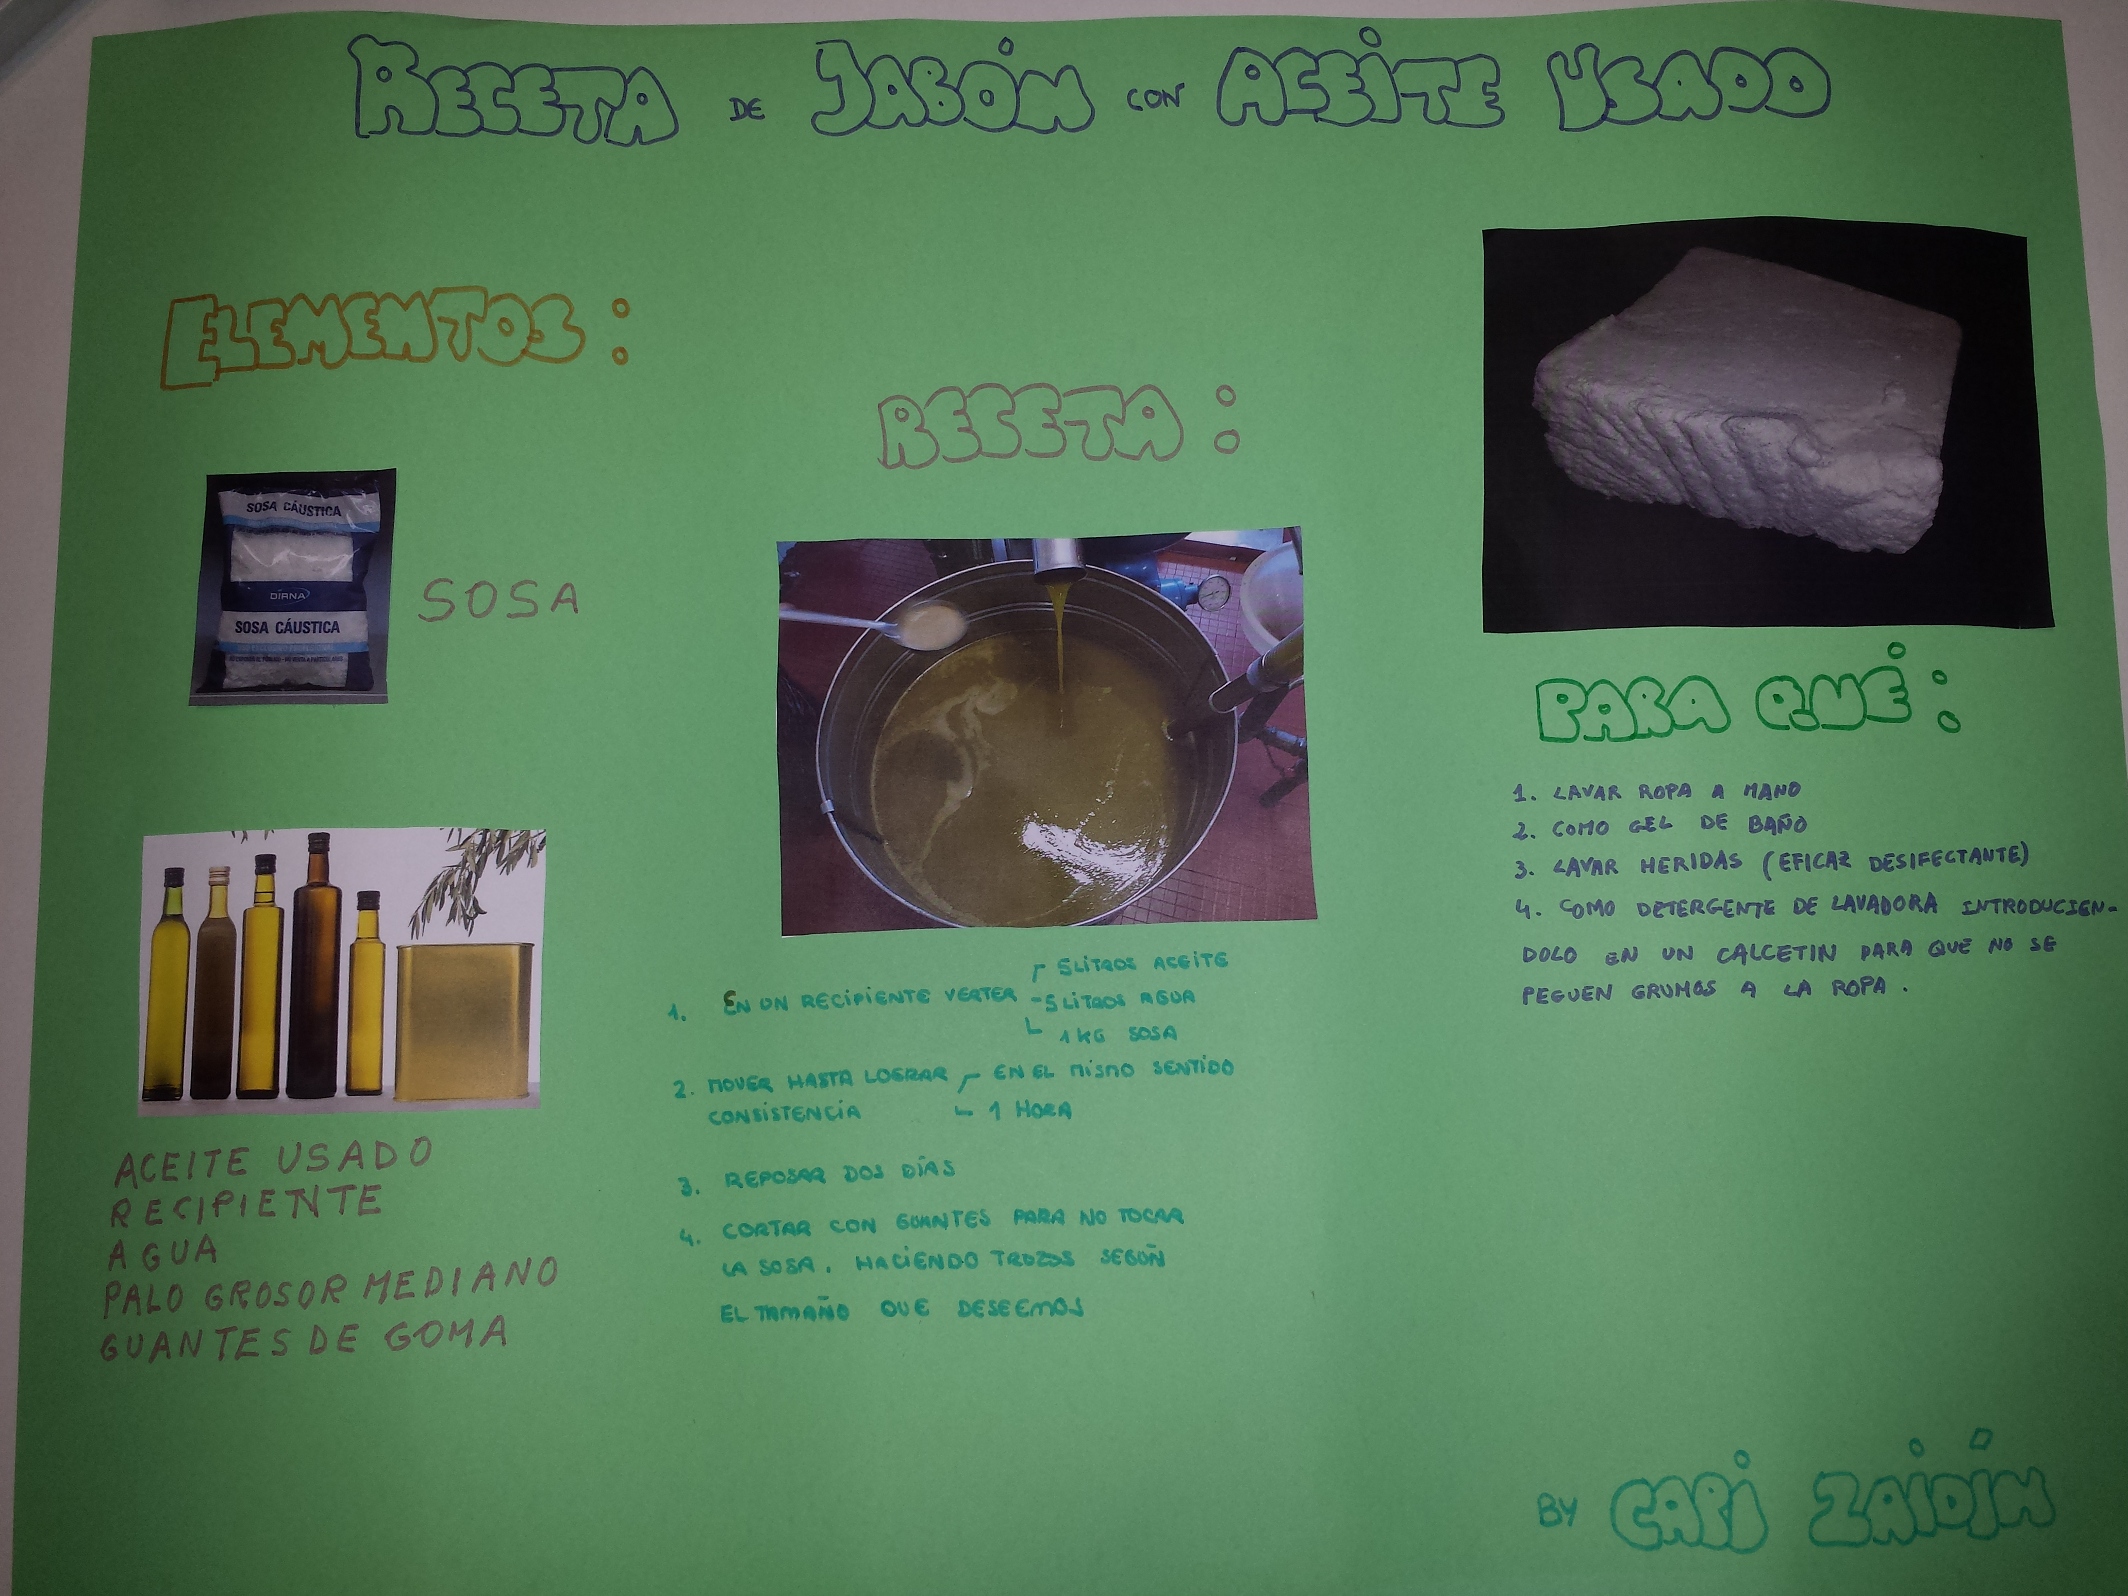 RECETA DE JABÓN CON ACEITE USADO
ELEMENTOS:
SOSA CÁUSTICA
DIRNA
SOSA CÁUSTICA
SOSA
ACEITE USADO
RECIPIENTE
AGUA
PALO GROSOR MEDIANO
GUANTES DE GOMA
RECETA:
1. EN UN RECIPIENTE VERTER
5 LITROS ACEITE
- 5 LITROS AGUA
1 KG SOSA
2. MOVER HASTA LOGRAR
CONSISTENCIA
EN EL MISMO SENTIDO
1 HORA
3. REPOSAR DOS DÍAS
4. CORTAR CON GUANTES PARA NO TOCAR
LA SOSA. HACIENDO TROZOS SEGÚN
EL TAMAÑO QUE DESEEMOS
PARA QUÉ:
1. LAVAR ROPA A MANO
2. COMO GEL DE BAÑO
3. LAVAR HERIDAS (EFICAZ DESIFECTANTE)
4. COMO DETERGENTE DE LAVADORA INTRODUCIEN-
DOLO EN UN CALCETIN PARA QUE NO SE
PEGUEN GRUMOS A LA ROPA.
BY CARI ZAIDÍN